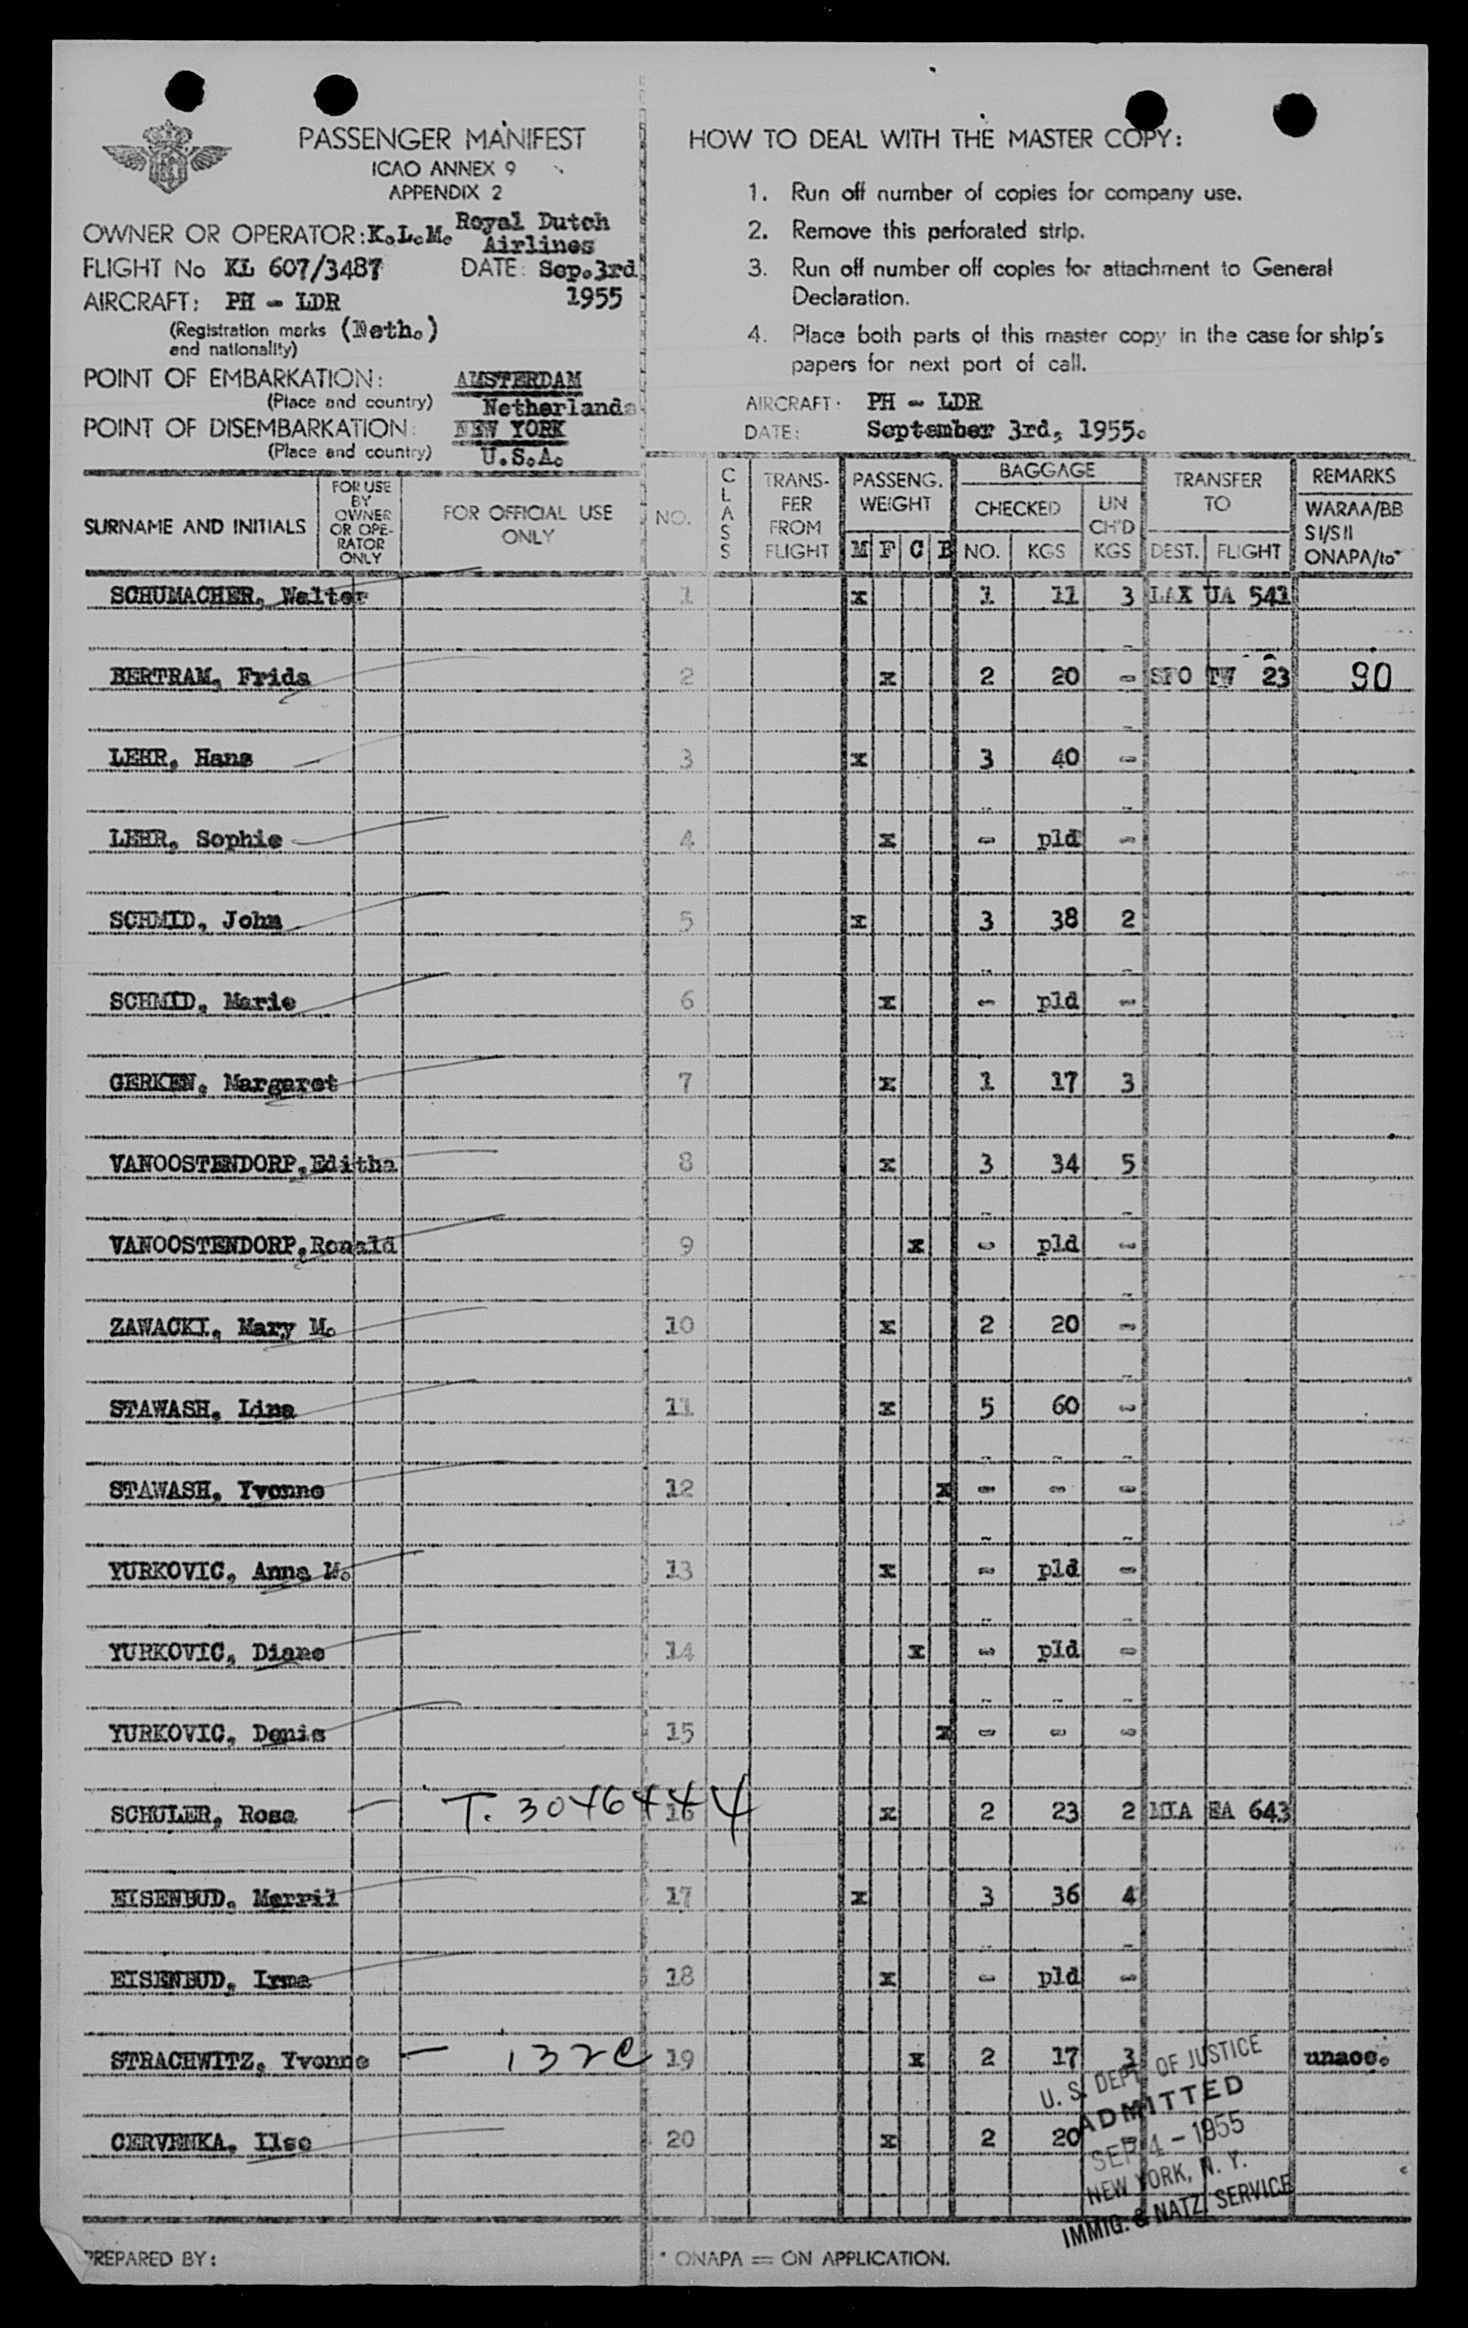 PASSENGER MANIFEST
ICAO ANNEX 9
APPENDIX 2
OWNER OR OPERATOR: K.L.M. Royal Dutch
Airlines
FLIGHT No KL 607/3487 DATE: Sep. 3rd
1955
AIRCRAFT: PH - LDR
(Registration marks (Neth.)
and nationality)
POINT OF EMBARKATION: AMSTERDAM
(Place and country) Netherlands
POINT OF DISEMBARKATION: NEW YORK
(Place and country) U.S.A.
HOW TO DEAL WITH THE MASTER COPY:
1. Run off number of copies for company use.
2. Remove this perforated strip.
3. Run off number off copies for attachment to General
Declaration.
4. Place both parts of this master copy in the case for ship's
papers for next port of call.
AIRCRAFT: PH - LDR
DATE: September 3rd, 1955.
SURNAME AND INITIALS
FOR USE
BY
OWNER
OR OPE-
RATOR
ONLY
FOR OFFICIAL USE
ONLY
NO.
CLASS
TRANS-
FER
FROM
FLIGHT
PASSENG.
WEIGHT
M F C B
BAGGAGE
CHECKED
NO. KGS
UN
CH'D
KGS
TRANSFER
TO
DEST. FLIGHT
REMARKS
WARAA/BB
SI/SII
ONAPA/to*
SCHUMACHER, Walter 1 x 1 11 3 LAX UA 541
BERTRAM, Frida 2 x 2 20 - SFO TW 23 90
LEHR, Hans 3 x 3 40 -
LEHR, Sophie 4 x - pld -
SCHMID, John 5 x 3 38 2
SCHMID, Marie 6 x - pld -
GERKEN, Margaret 7 x 1 17 3
VANOOSTENDORP, Editha 8 x 3 34 5
VANOOSTENDORP, Ronald 9 x - pld -
ZAWACKI, Mary M. 10 x 2 20 -
STAWASH, Lina 11 x 5 60 -
STAWASH, Yvonne 12 x - - -
YURKOVIC, Anna M. 13 x - pld -
YURKOVIC, Diane 14 x - pld -
YURKOVIC, Denis 15 x - - -
SCHULER, Rosa T. 3046444 16 x 2 23 2 MIA EA 643
EISENBUD, Merril 17 x 3 36 4
EISENBUD, Irma 18 x - pld -
STRACHWITZ, Yvonne - 132c 19 x 2 17 3 unacc.
CERVENKA, Ilse 20 x 2 20 -
U. S. DEPT. OF JUSTICE
ADMITTED
SEP 4 - 1955
NEW YORK, N. Y.
IMMIG. & NATZ. SERVICE
PREPARED BY:
* ONAPA = ON APPLICATION.